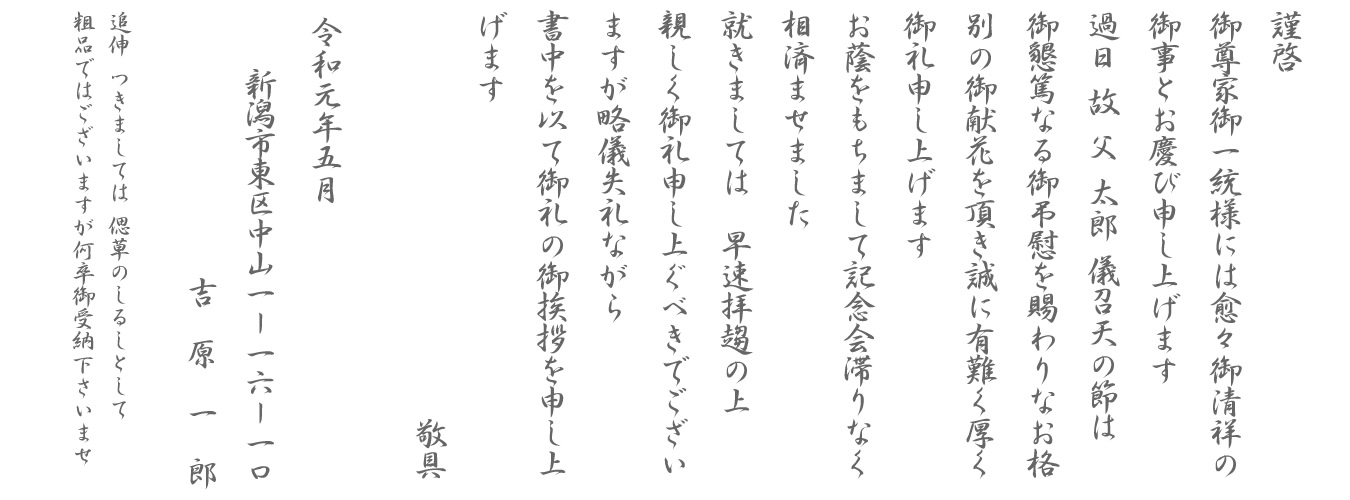 謹啓
御尊家御一統様には愈々御清祥の
御事とお慶び申し上げます
過日 故 父 太郎 儀召天の節は
御懇篤なる御弔慰を賜わりなお格
別の御献花を頂き誠に有難く厚く
御礼申し上げます
お蔭をもちまして記念会滞りなく
相済ませました
就きましては 早速拝趨の上
親しく御礼申し上ぐべきでござい
ますが略儀失礼ながら
書中を以て御礼の御挨拶を申し上
げます
敬具
令和元年五月
新潟市東区中山一ー一六ー一ロ
吉原一郎
追伸 つきましては 偲草のしるしとして
粗品ではございますが何卒御受納下さいませ